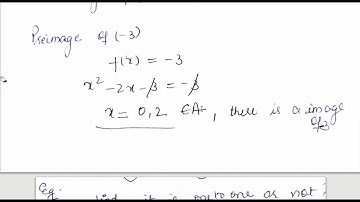 Preimage of (-3)
f(x) = -3
x² - 2x - 3 = -3
x = 0, 2 ∈ A, there is a image
of 3
Eg: it is one to one or not